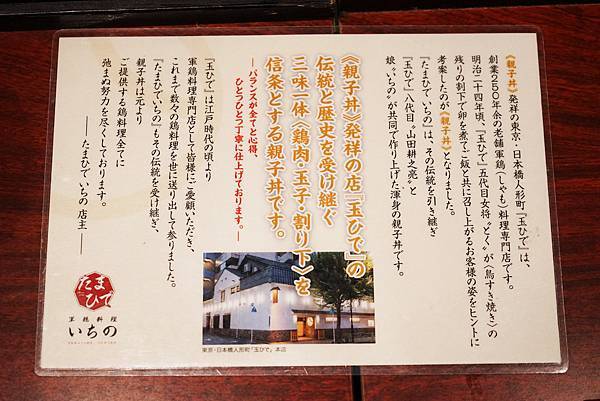 《親子丼》発祥の東京・日本橋人形町『玉ひで』は、
創業２５０年余の老舗軍鶏(しゃも)料理専門店です。
明治二十四年頃、『玉ひで』五代目女将〝とく〟が〈鳥すき焼き〉の
残りの割下で卵を煮てご飯と共に召し上がるお客様の姿をヒントに
考案したのが《親子丼》となりました。
『たまひでいちの』は、その伝統を引き継ぎ
『玉ひで』八代目〝山田耕之亮〟と
娘〝いちの〟が共同で作り上げた渾身の親子丼です。
《親子丼》発祥の店『玉ひで』の
伝統と歴史を受け継ぐ
三味一体〈鶏肉・玉子・割り下〉を
信条とする親子丼です。
――バランスが全てと心得、
ひとつひとつ丁寧に仕上げております。
『玉ひで』は江戸時代の頃より
軍鶏料理専門店として皆様にご愛顧いただき、
これまで数々の鶏料理を世に送り出して参りました。
『たまひでいちの』もその伝統を受け継ぎ、
親子丼は元より
ご提供する鶏料理全てに
弛まぬ努力を尽くしております。
――たまひで いちの 店主――
東京・日本橋人形町『玉ひで』本店
たまひで
軍鶏料理
いちの
TAMAHIDE ICHINO